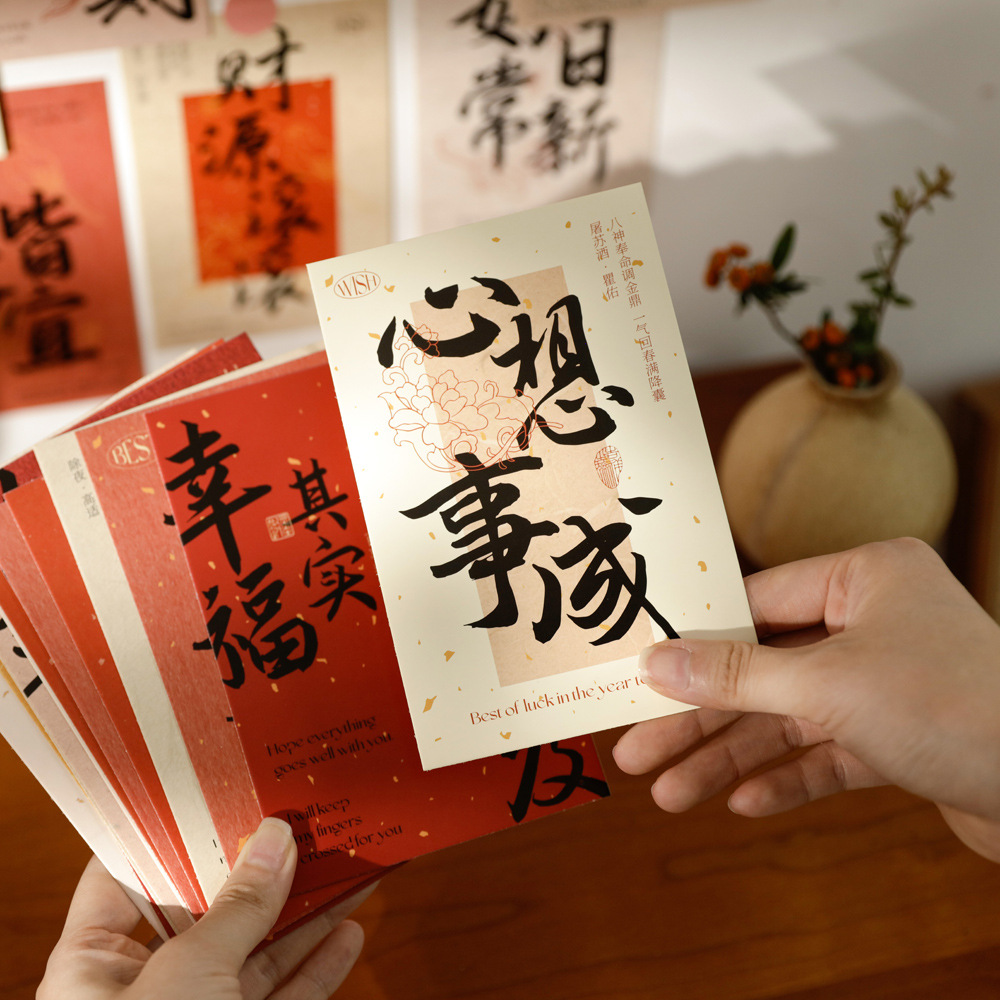 财源滚滚
日新
皆宜
WISH
心想
事成
八神奉命调金鼎 一气回春满降囊
屠苏酒·瞿佑
Best of luck in the year to
BEST
除夜 高适
其实
幸福
Hope everything
goes well with you.
I will keep
my fingers
crossed for you
及